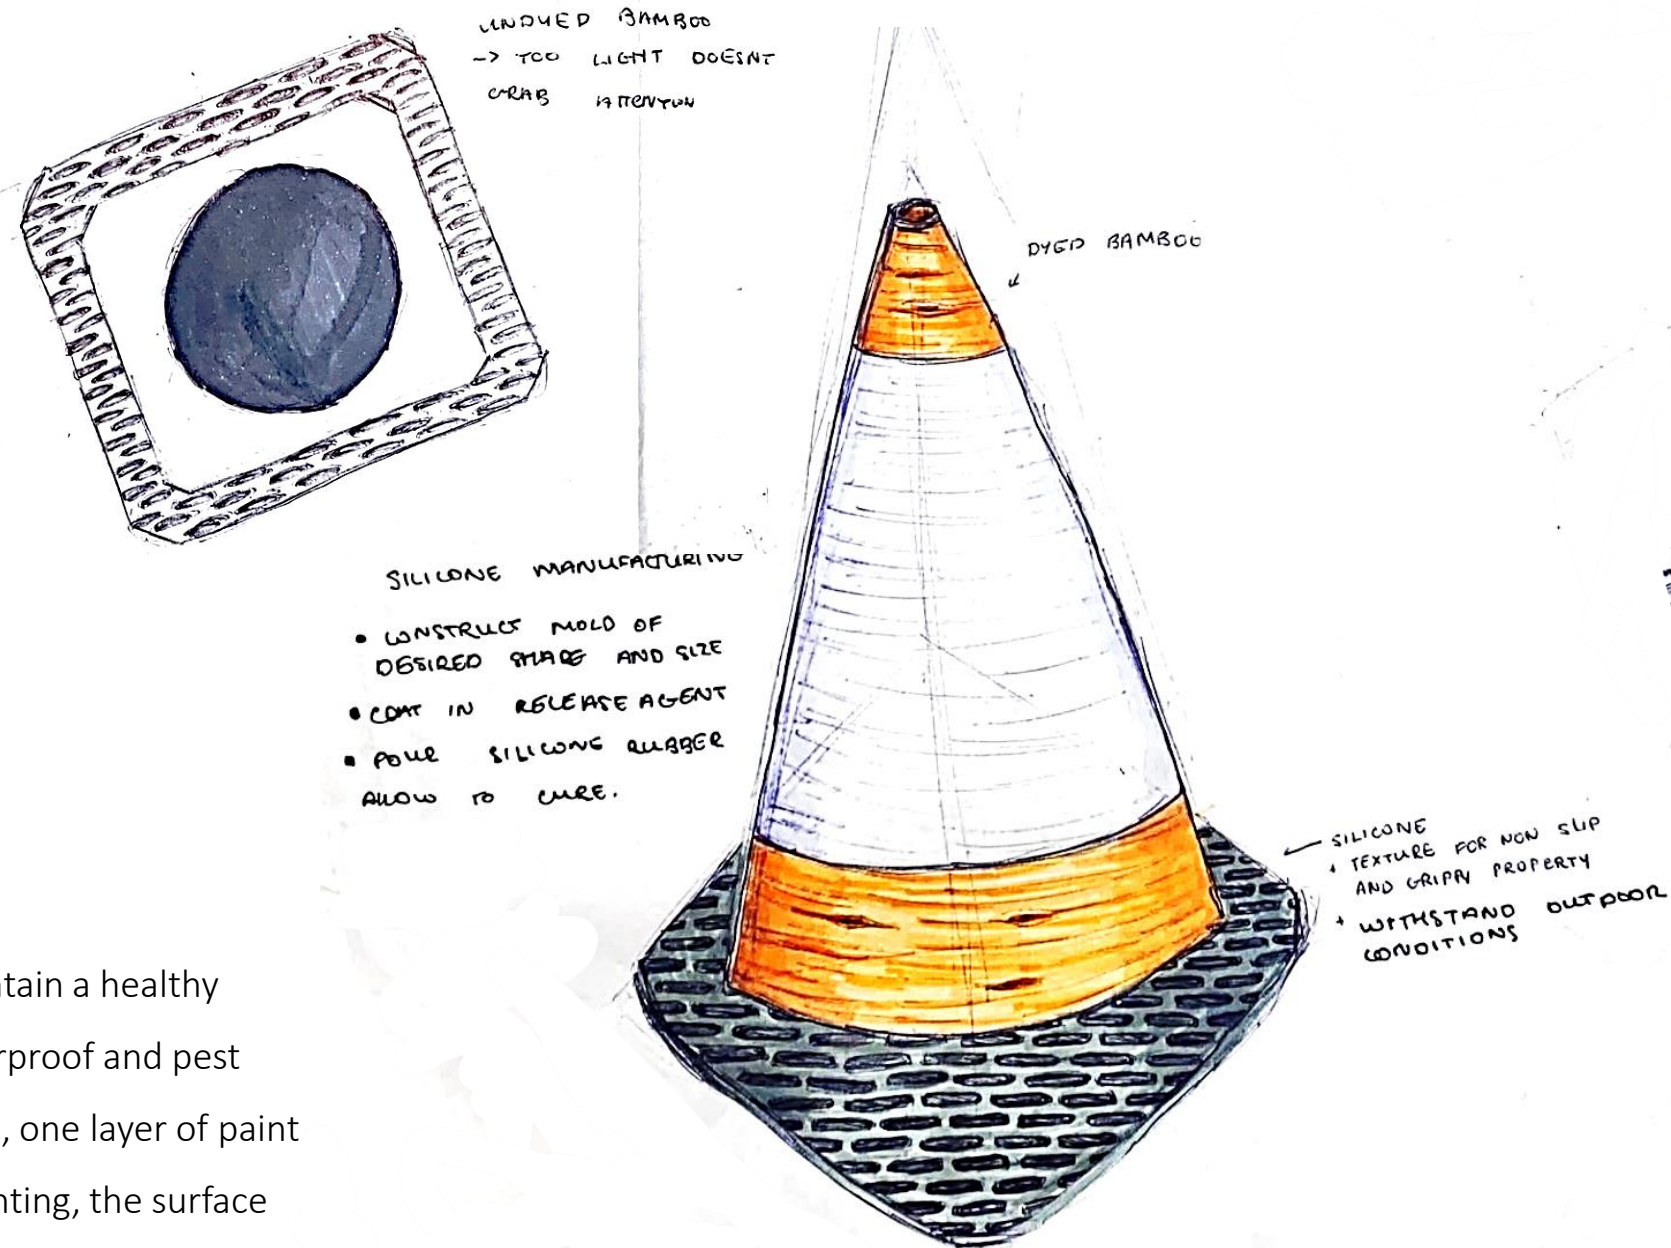 UNDYED BAMBOO
-> TOO LIGHT DOESNT
GRAB ATTENTION
DYED BAMBOO
SILICONE MANUFACTURING
• CONSTRUCT MOLD OF
DESIRED SHAPE AND SIZE
• COAT IN RELEASE AGENT
• POUR SILICONE RUBBER
ALLOW TO CURE.
SILICONE
+ TEXTURE FOR NON SLIP
AND GRIPPY PROPERTY
+ WITHSTAND OUTDOOR
CONDITIONS
tain a healthy
rproof and pest
, one layer of paint
nting, the surface